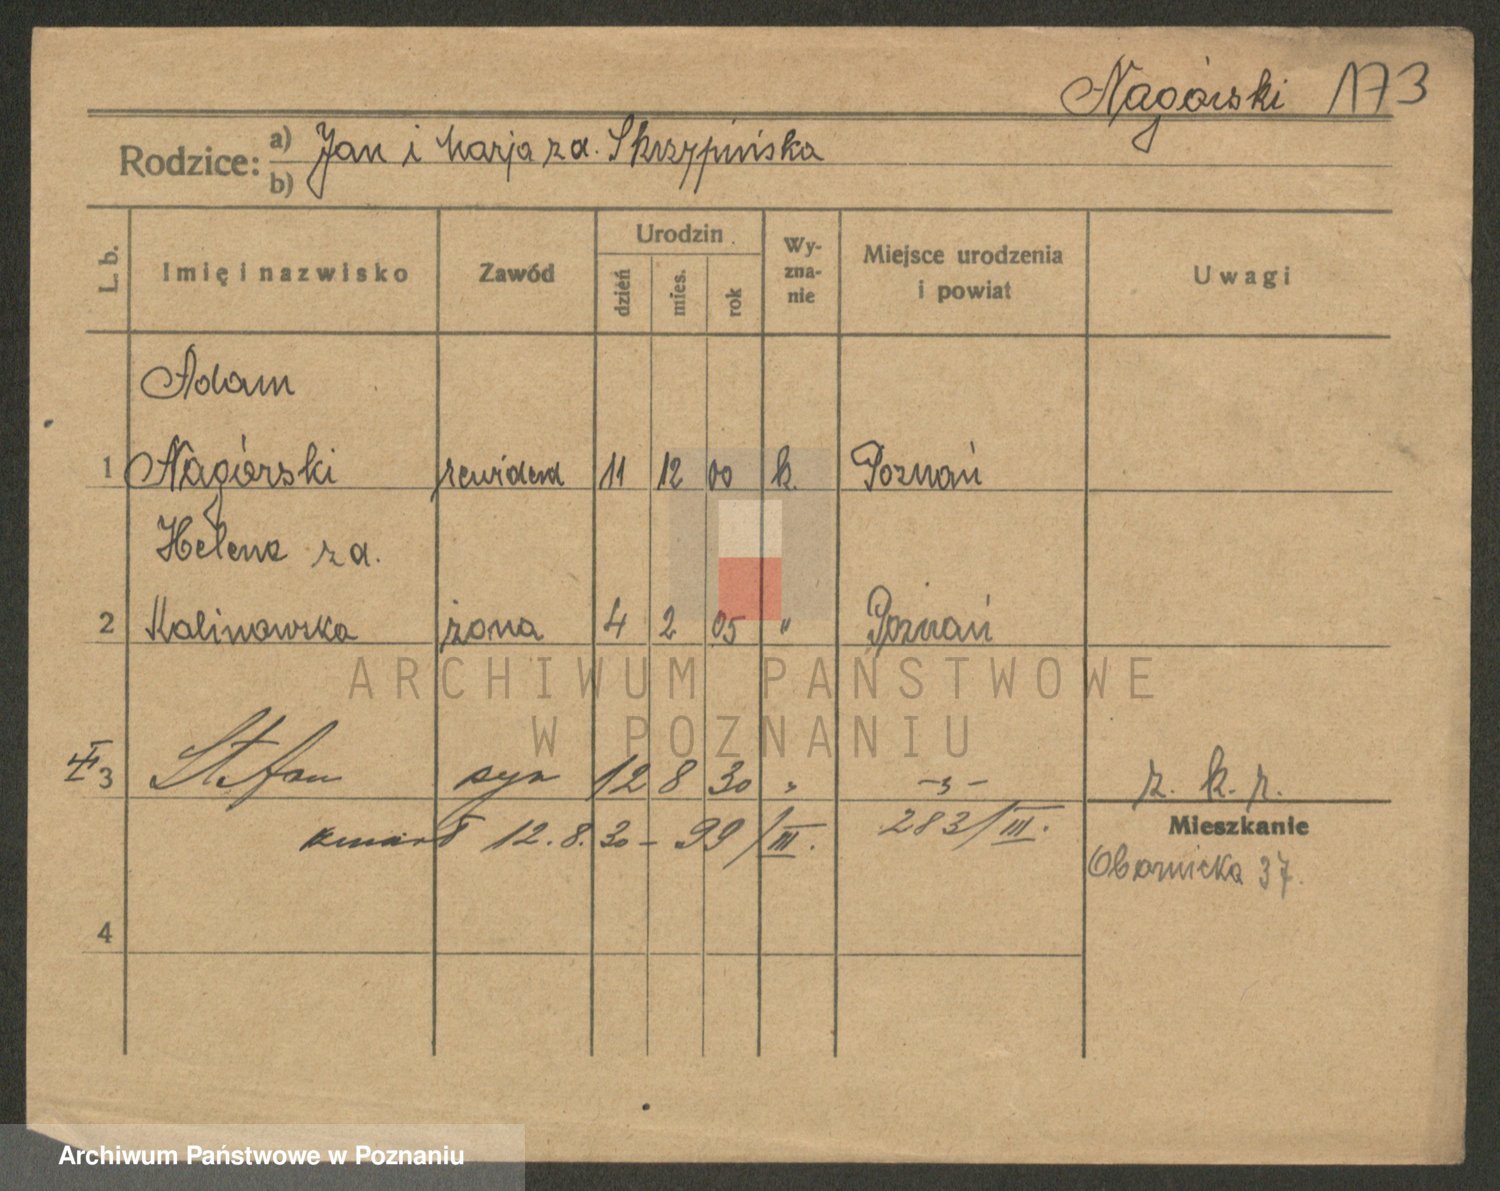 Nagórski 173
Rodzice: a) Jan i Marja zd. Skrzypińska
b)
L. b.
Imię i nazwisko
Zawód
Urodzin
dzień
mies.
rok
Wy-
zna-
nie
Miejsce urodzenia
i powiat
Uwagi
Adam
1 Nagórski rewident 11 12 00 k. Poznań
Helena zd.
2 Kalinowska żona 4 2 05 " Poznań
ARCHIWUM PAŃSTWOWE
W POZNANIU
3 Stefan syn 12 8 30 " -"- r. k. r.
zmarł 12.8.30 - 99/III. 283/III.
Mieszkanie
Obornicka 37.
4
Archiwum Państwowe w Poznaniu